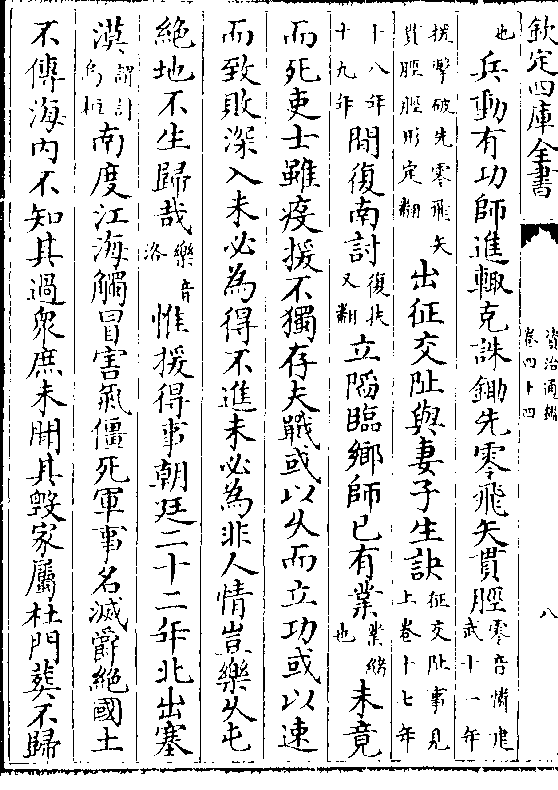 欽定四庫全書
資治通鑑
卷四十四
八
也兵動有功師進輒克誅鋤先零飛矢貫脛零音憐建武十一年
援擊破先零飛矢貫脛脛形定翻出征交阯與妻子生訣征交阯事見上卷十七年
十八年十九年間復南討復扶又翻立陷臨鄉師已有業業緒也未竟
而死吏士雖疫援不獨存夫戰或以久而立功或以速
而致敗深入未必為得不進未必為非人情豈樂久屯
絶地不生歸哉樂音洛惟援得事朝廷二十二年北出塞
漠謂討烏桓南度江海觸冒害氣僵死軍事名滅爵絶國土
不傳海内不知其過衆庶未聞其毁家屬杜門葬不歸